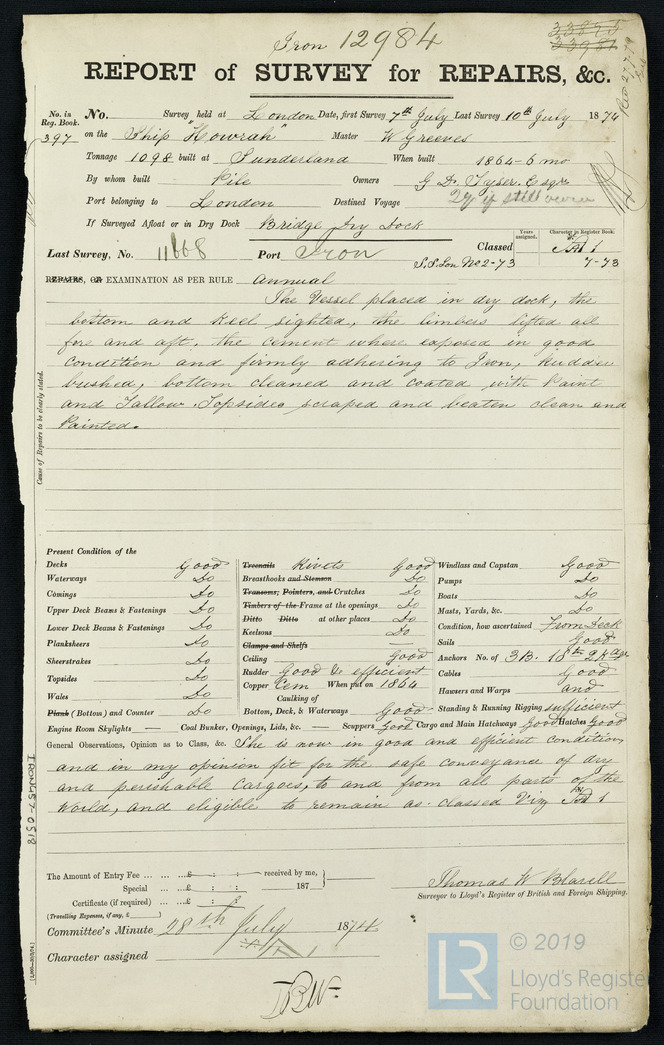 Iron 12984
REPORT of SURVEY for REPAIRS, &c.
No. in Reg. Book. No. Survey held at London Date, first Survey 7th July Last Survey 10th July 1874
397 on the Ship "Howrah" Master W Greeves
Tonnage 1098 built at Sunderland When built 1864-6 mo
By whom built Pile Owners G D. Tyser, Esqr
Port belonging to London Destined Voyage
If Surveyed Afloat or in Dry Dock Bridge Dry Dock
Years assigned. Character in Register Book.
Last Survey, No. 11668 Port Iron Classed
S.S. Lon No 2-73 7-73
REPAIRS, OR EXAMINATION AS PER RULE annual
The Vessel placed in dry dock, the
bottom and keel sighted, the limbers lifted all
fore and aft, the cement where exposed in good
condition and firmly adhering to Iron, Rudder
bushed, bottom cleaned and coated with Paint
and Tallow. Topsides scraped and beaten clean and
Painted.
Cause of Repairs to be clearly stated.
Present Condition of the
Decks Good
Waterways Do
Comings Do
Upper Deck Beams & Fastenings Do
Lower Deck Beams & Fastenings Do
Planksheers Do
Sheerstrakes Do
Topsides Do
Wales Do
Plank (Bottom) and Counter Do
Treenails Rivets Good
Breasthooks and Stemson Do
Transoms, Pointers, and Crutches Do
Timbers of the Frame at the openings Do
Ditto Ditto at other places Do
Keelsons Do
Clamps and Shelfs
Ceiling Good
Rudder Good & efficient
Copper Cem When put on 1864
Caulking of
Bottom, Deck, & Waterways Good
Windlass and Capstan Good
Pumps Do
Boats Do
Masts, Yards, &c. Do
Condition, how ascertained From Deck
Sails Good
Anchors No. of 3B.
Cables Good
Hawsers and Warps and
Standing & Running Rigging sufficient
Engine Room Skylights — Coal Bunker, Openings, Lids, &c. — Scuppers Good Cargo and Main Hatchways Good Hatches Good
General Observations, Opinion as to Class, &c. She is now in good and efficient condition,
and in my opinion fit for the safe conveyance of dry
and perishable Cargoes, to and from all parts of the
World, and eligible to remain as classed Viz
The Amount of Entry Fee ... £ : : received by me,
Special ... £ : : 187
Certificate (if required) ... £ : :
(Travelling Expenses, if any, £ )
Thomas W
Surveyor to Lloyd's Register of British and Foreign Shipping.
Committee's Minute 28th July 1874
Character assigned
IRON457-0518
LR © 2019
Lloyd's Register
Foundation